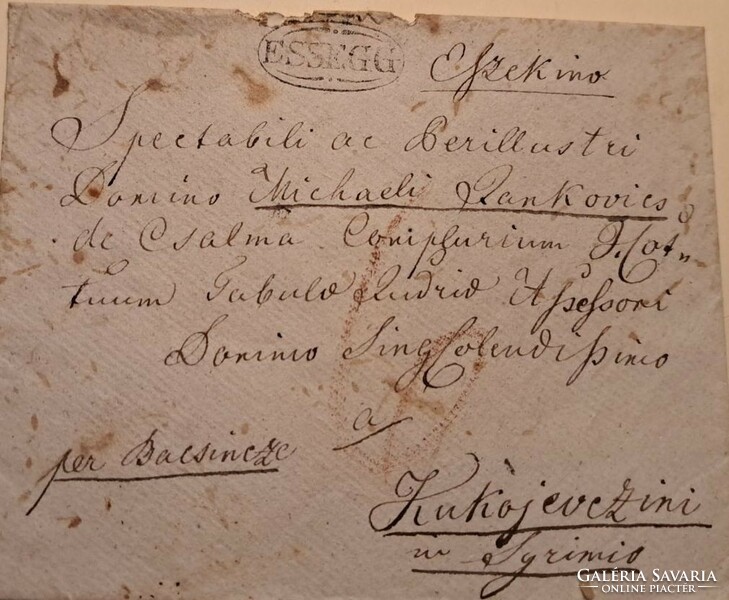 ESSEGG
Eszekino
Spectabili ac Perillustri
Domino Michaeli Jankovics
de Csalma Complurium I. Cot„
tuum Tabulæ Judriæ Assessori
Domino Sing Colendissimo
a
per Bacsincze
Kukojevczini
in Syrimio
GALÉRIA SAVARIA
ONLINE PIACTÉR